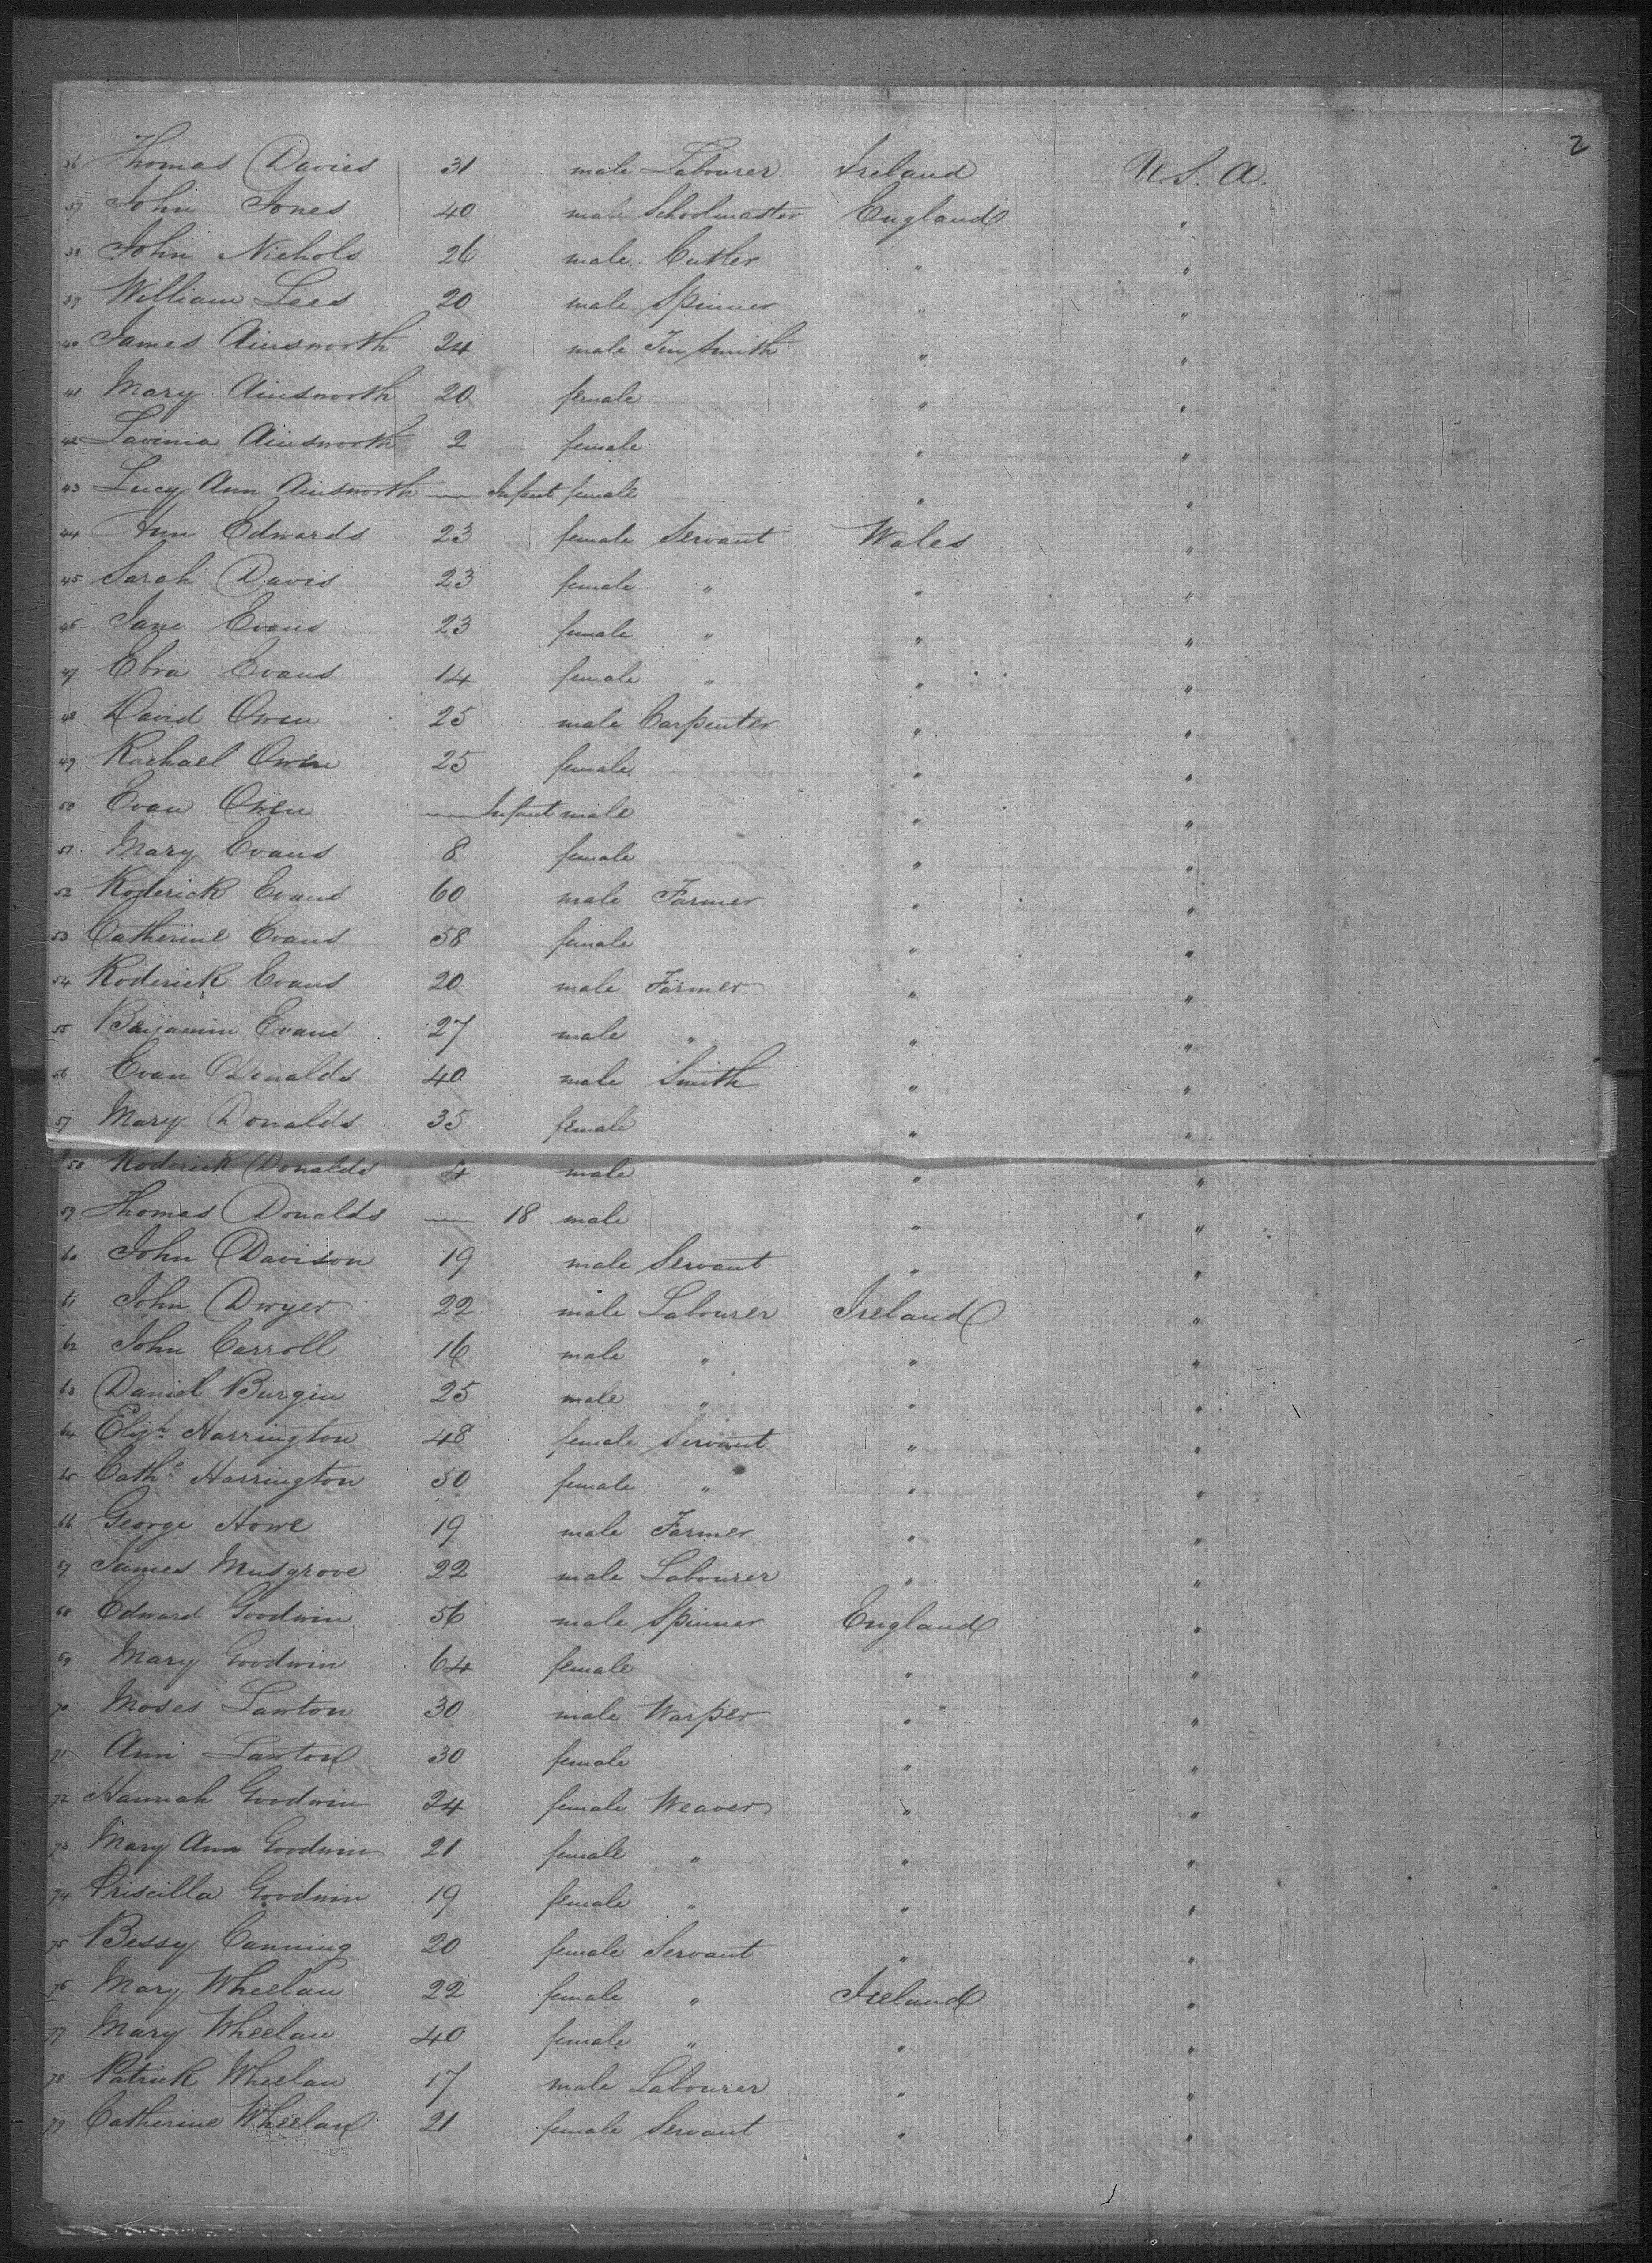 2
36 Thomas Davies 31 male Labourer Ireland U.S.A.
37 John Jones 40 male Schoolmaster England "
38 John Nichols 26 male Cutler " "
39 William Lees 20 male Spinner " "
40 James Ainsworth 24 male Tin Smith " "
41 Mary Ainsworth 20 female " "
42 Lavinia Ainsworth 2 female " "
43 Lucy Ann Ainsworth — Infant female " "
44 Ann Edwards 23 female Servant Wales "
45 Sarah Davis 23 female " " "
46 Jane Evans 23 female " " "
47 Ebra Evans 14 female " " "
48 David Owen 25 male Carpenter " "
49 Rachael Owen 25 female " "
50 Evan Owen — Infant male " "
51 Mary Evans 8 female " "
52 Roderick Evans 60 male Farmer " "
53 Catherine Evans 58 female " "
54 Roderick Evans 20 male Farmer " "
55 Benjamin Evans 27 male " " "
56 Evan Donalds 40 male Smith " "
57 Mary Donalds 35 female " "
58 Roderick Donalds 4 male " "
59 Thomas Donalds — 18 male " "
60 John Davison 19 male Servant " "
61 John Dwyer 22 male Labourer Ireland "
62 John Carroll 16 male " " "
63 Daniel Burgin 25 male " " "
64 Elizth Harrington 48 female Servant " "
65 Cathe Harrington 50 female " " "
66 George Howe 19 male Farmer " "
67 James Musgrove 22 male Labourer " "
68 Edward Goodwin 56 male Spinner England "
69 Mary Goodwin 64 female " "
70 Moses Lawton 30 male Warper " "
71 Ann Lawton 30 female " "
72 Hannah Goodwin 24 female Weaver " "
73 Mary Ann Goodwin 21 female " " "
74 Priscilla Goodwin 19 female " " "
75 Bessy Canning 20 female Servant " "
76 Mary Wheelan 22 female " Ireland "
77 Mary Wheelan 40 female " " "
78 Patrick Wheelan 17 male Labourer " "
79 Catherine Wheelan 21 female Servant " "